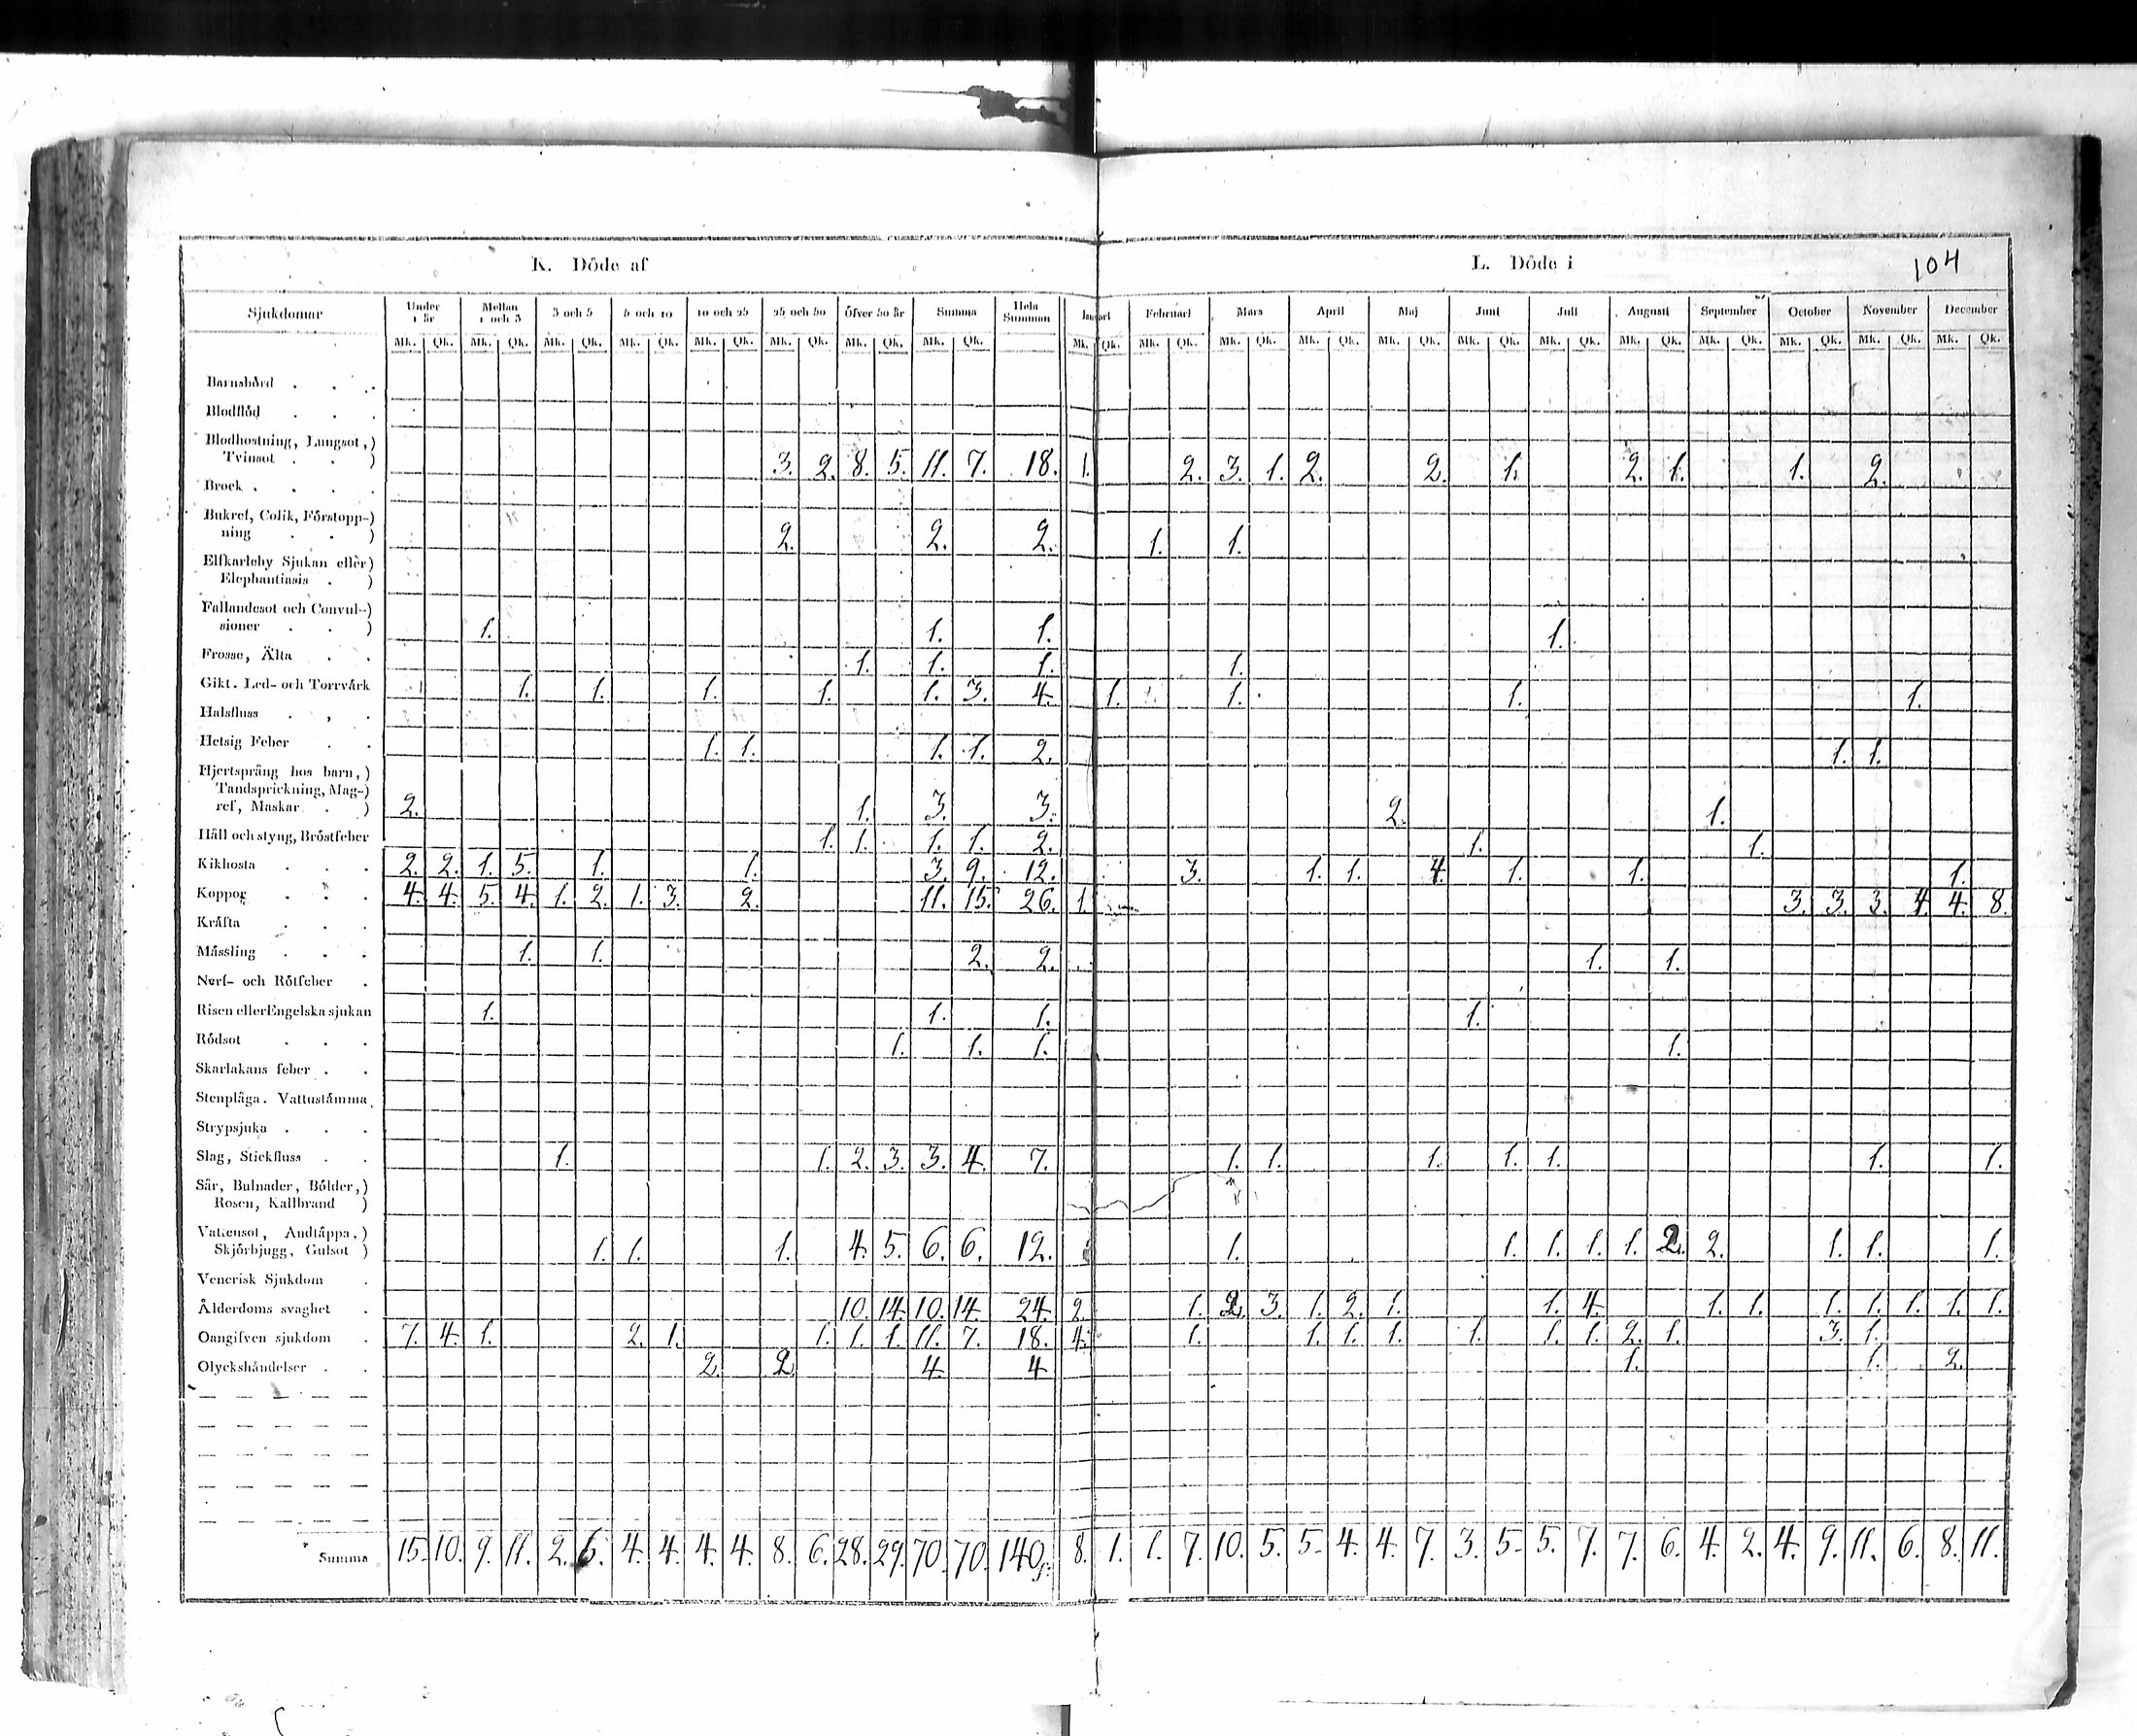 104
K. Döde af L. Döde i
Sjukdomar Under 1 år Mellan 1 och 3 3 och 5 5 och 10 10 och 25 25 och 50 Öfver 50 år Summa Hela Summan Januari Februari Mars April Maj Juni Juli Augusti September October November December
Mk. Qk. Mk. Qk. Mk. Qk. Mk. Qk. Mk. Qk. Mk. Qk. Mk. Qk. Mk. Qk. Mk. Qk. Mk. Qk. Mk. Qk. Mk. Qk. Mk. Qk. Mk. Qk. Mk. Qk. Mk. Qk. Mk. Qk. Mk. Qk. Mk. Qk. Mk. Qk.
Barnsbörd . . .
Blodflöd . . .
Blodhostning, Lungsot,)
Tvinsot . . ) 3. 2. 8. 5. 11. 7. 18. 1. 2. 3. 1. 2. 2. 1. 2. 1. 1. 2.
Brock . . . .
Bukref, Colik, Förstopp-)
ning . . ) 2. 2. 2. 1. 1.
Elfkarleby Sjukan eller)
Elephantiasis . )
Fallandesot och Convul-)
sioner . . ) 1. 1. 1. 1.
Frossa, Älta . . 1. 1. 1. 1.
Gikt. Led- och Torrvärk 1. 1. 1. 1. 1. 3. 4. 1. 1. 1. 1.
Halsfluss . , .
Hetsig Feber . . 1. 1. 1. 1. 2. 1. 1.
Hjertsprång hos barn,)
Tandsprickning, Mag-)
ref, Maskar . ) 2. 1. 3. 3. 2. 1.
Håll och styng, Bröstfeber 1. 1. 1. 1. 2. 1. 1.
Kikhosta . . . 2. 2. 1. 5. 1. 1. 3. 9. 12. 3. 1. 1. 4. 1. 1. 1.
Koppor . . . 4. 4. 5. 4. 1. 2. 1. 3. 2. 11. 15. 26. 1. 3. 3. 3. 4. 4. 8.
Kräfta . . .
Mässling . . . 1. 1. 2. 2. 1. 1.
Nerf- och Rötfeber .
Risen eller Engelska sjukan 1. 1. 1. 1.
Rödsot . . . 1. 1. 1. 1.
Skarlakans feber . .
Stenplåga. Vattustämma.
Strypsjuka . . .
Slag, Stickfluss . . 1. 1. 2. 3. 3. 4. 7. 1. 1. 1. 1. 1. 1. 1.
Sår, Bulnader, Bölder,)
Rosen, Kallbrand )
Vattensot, Andtäppa,)
Skjörbjugg, Gulsot ) 1. 1. 1. 4. 5. 6. 6. 12. 1. 1. 1. 1. 1. 2. 2. 1. 1. 1.
Venerisk Sjukdom .
Ålderdoms svaghet . 10. 14. 10. 14. 24. 2. 1. 2. 3. 1. 2. 1. 1. 4. 1. 1. 1. 1. 1. 1. 1.
Oangifven sjukdom . 7. 4. 1. 2. 1. 1. 1. 1. 11. 7. 18. 4. 1. 1. 1. 1. 1. 1. 1. 2. 1. 3. 1.
Olyckshändelser . . 2. 2. 4 4 1. 1. 2.
Summa 15. 10. 9. 11. 2. 6. 4. 4. 4. 4. 8. 6. 28. 29. 70. 70. 140 8. 1. 1. 7. 10. 5. 5. 4. 4. 7. 3. 5. 5. 7. 7. 6. 4. 2. 4. 9. 11. 6. 8. 11.